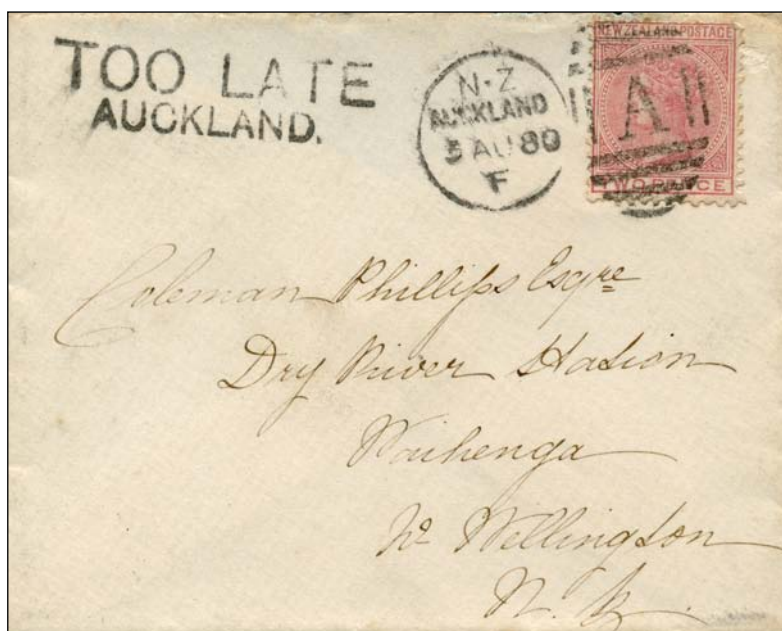 TOO LATE
AUCKLAND.
N·Z
AUCKLAND
5 AU 80
F
NEW ZEALAND POSTAGE
A
TWO PENCE
Coleman Phillips Esqre
Dry River Station
Waihenga
Nr Wellington
N. Z.